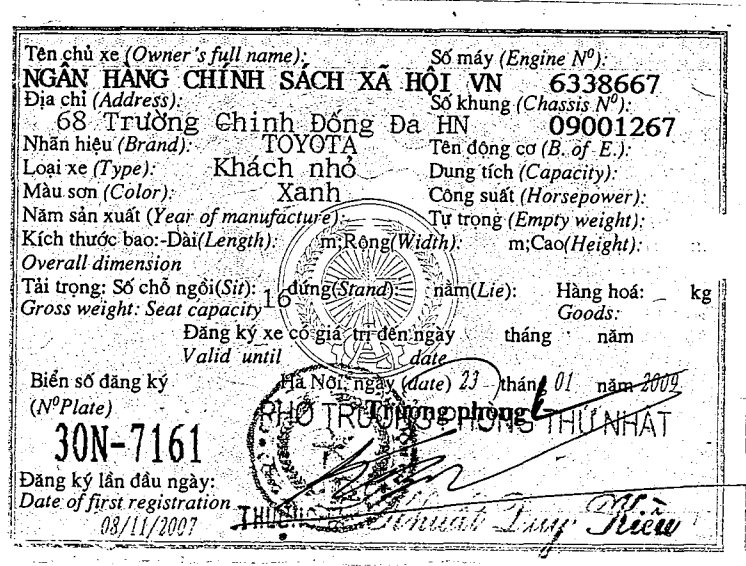 Tên chủ xe (Owner's full name): Số máy (Engine Nº):
NGÂN HÀNG CHÍNH SÁCH XÃ HỘI VN 6338667
Địa chỉ (Address): Số khung (Chassis Nº):
68 Trường Chinh Đống Đa HN 09001267
Nhãn hiệu (Brand): TOYOTA Tên động cơ (B. of E.):
Loại xe (Type): Khách nhỏ Dung tích (Capacity):
Màu sơn (Color): Xanh Công suất (Horsepower):
Năm sản xuất (Year of manufacture): Tự trọng (Empty weight):
Kích thước bao:-Dài(Length): m;Rộng(Width): m;Cao(Height):
Overall dimension
Tải trọng: Số chỗ ngồi(Sit): 16 đứng(Stand): nằm(Lie): Hàng hoá: kg
Gross weight: Seat capacity Goods:
Đăng ký xe có giá trị đến ngày tháng năm
Valid until date
Biển số đăng ký Hà Nội, ngày (date) 23 tháng 01 năm 2009
(NºPlate) PHÓ TRƯỞNG PHÒNG THỨ NHẤT
Trưởng phòng
30N-7161
Đăng ký lần đầu ngày:
Date of first registration
08/11/2007 Khuất Duy Kiều